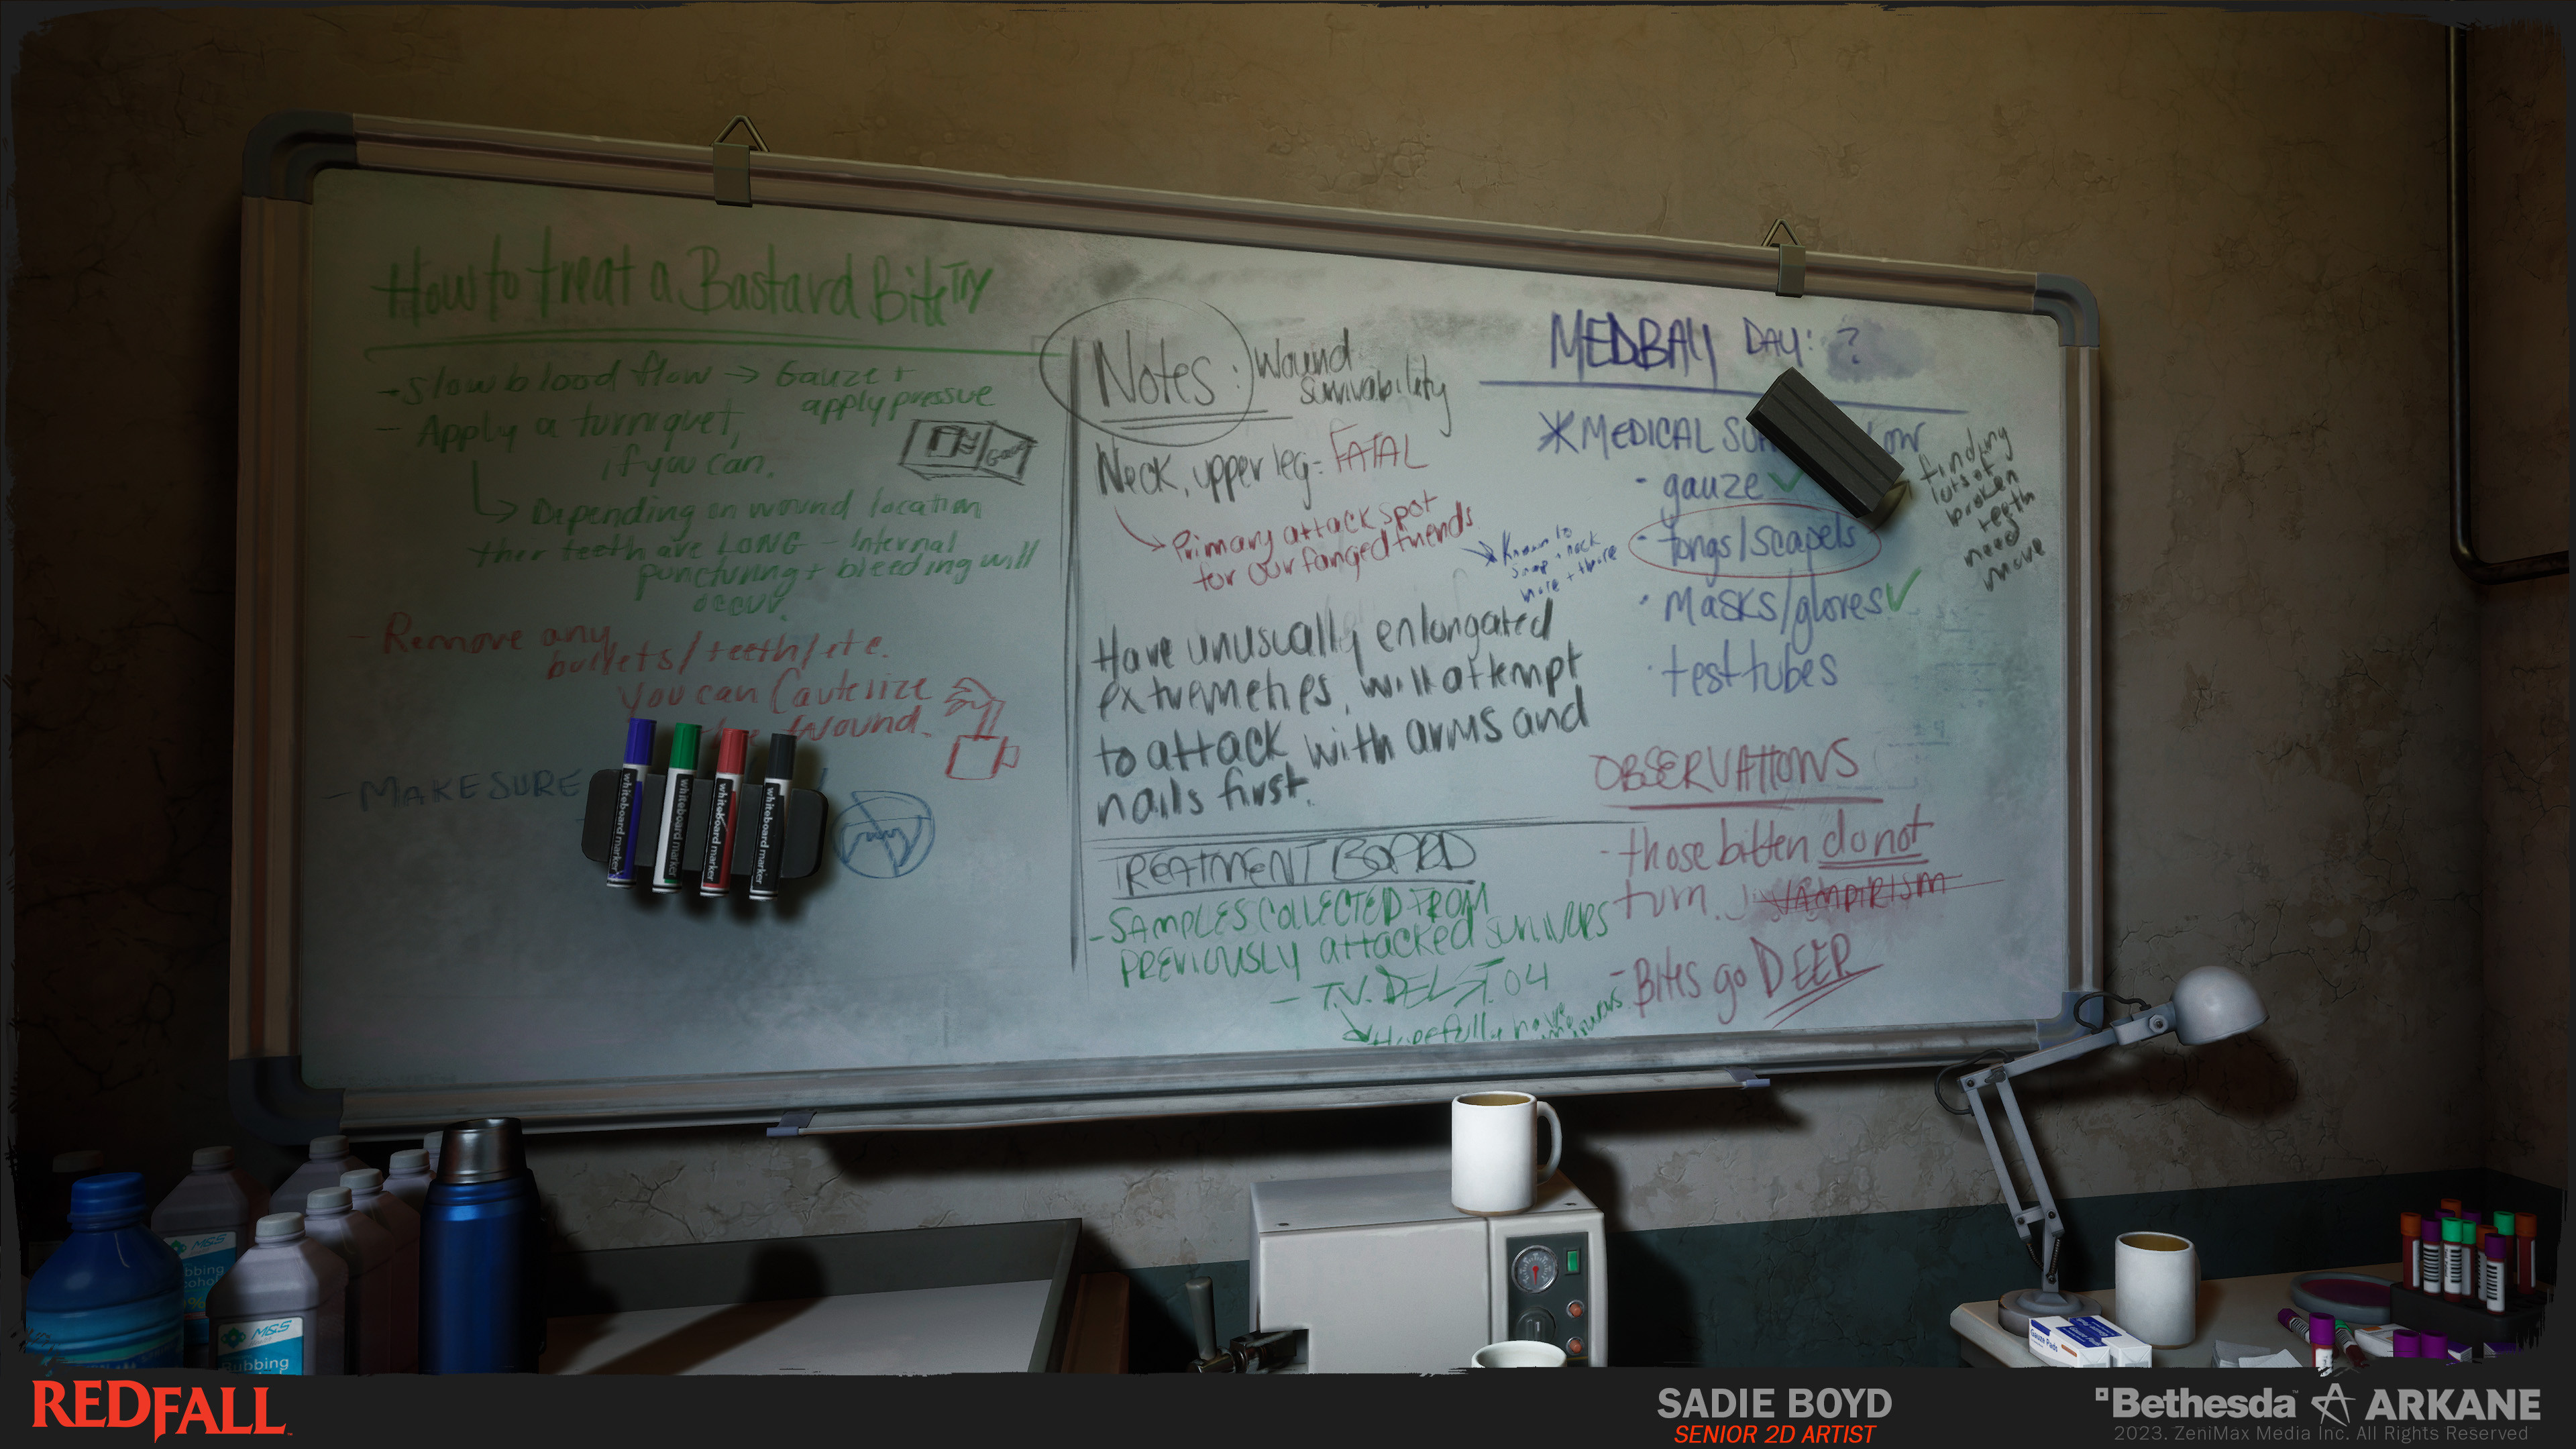 How to treat a Bastard Bite TM
- Slow blood flow → Gauze +
apply pressue
- Apply a turniquet,
if you can.
↳ Depending on wound location
ther teeth are LONG - Internal
puncturing + bleeding will
occur.
- Remove any
bullets/teeth/etc.
you can Cauterize
the wound.
- MAKE SURE
Notes: Wound
survivability
Neck, upper leg = FATAL
→ Primary attack spot
for our fanged friends
Known to
neck
more + more
Have unusually enlongated
extremeties, will attempt
to attack with arms and
nails first.
TREATMENT BOARD
- SAMPLES COLLECTED FROM
PREVIOUSLY attacked survivors
- T.V. DEL
04
Hopefully have
MEDBAY DAY: ?
* MEDICAL SU
LOW
· gauze ✓
· tongs/scapels
· Masks/gloves ✓
· test tubes
finding
lots of
broken
teeth
need
more
OBSERVATIONS
- those bitten do not
turn. VAMPIRISM
- Bites go DEEP
whiteboard marker
whiteboard marker
whiteboard marker
whiteboard marker
M&S
M&S
Rubbing
Gauze Pads
REDFALL
SADIE BOYD
SENIOR 2D ARTIST
Bethesda ARKANE
2023. ZeniMax Media Inc. All Rights Reserved